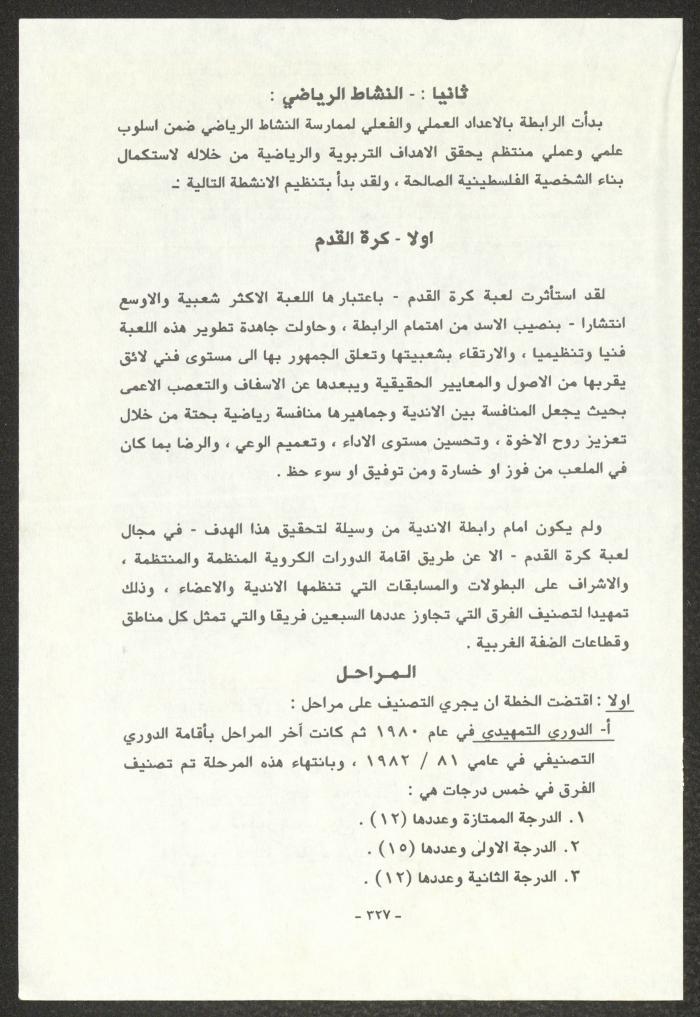 ثانيا : - النشاط الرياضي :
بدأت الرابطة بالاعداد العملي والفعلي لممارسة النشاط الرياضي ضمن اسلوب
علمي وعملي منتظم يحقق الاهداف التربوية والرياضية من خلاله لاستكمال
بناء الشخصية الفلسطينية الصالحة ، ولقد بدأ بتنظيم الانشطة التالية :ـ
اولا - كرة القدم
لقد استأثرت لعبة كرة القدم - باعتبارها اللعبة الاكثر شعبية والاوسع
انتشارا - بنصيب الاسد من اهتمام الرابطة ، وحاولت جاهدة تطوير هذه اللعبة
فنيا وتنظيميا ، والارتقاء بشعبيتها وتعلق الجمهور بها الى مستوى فني لائق
يقربها من الاصول والمعايير الحقيقية ويبعدها عن الاسفاف والتعصب الاعمى
بحيث يجعل المنافسة بين الاندية وجماهيرها منافسة رياضية بحتة من خلال
تعزيز روح الاخوة ، وتحسين مستوى الاداء ، وتعميم الوعي ، والرضا بما كان
في الملعب من فوز او خسارة ومن توفيق او سوء حظ .
ولم يكون امام رابطة الاندية من وسيلة لتحقيق هذا الهدف - في مجال
لعبة كرة القدم - الا عن طريق اقامة الدورات الكروية المنظمة والمنتظمة ،
والاشراف على البطولات والمسابقات التي تنظمها الاندية والاعضاء ، وذلك
تمهيدا لتصنيف الفرق التي تجاوز عددها السبعين فريقا والتي تمثل كل مناطق
وقطاعات الضفة الغربية .
المراحل
اولا : اقتضت الخطة ان يجري التصنيف على مراحل :
أ- الدوري التمهيدي في عام ١٩٨٠ ثم كانت آخر المراحل بأقامة الدوري
التصنيفي في عامي ٨١ / ١٩٨٢ ، وبانتهاء هذه المرحلة تم تصنيف
الفرق في خمس درجات هي :
١. الدرجة الممتازة وعددها (١٢) .
٢. الدرجة الاولى وعددها (١٥) .
٣. الدرجة الثانية وعددها (١٢) .
- ٣٢٧ -